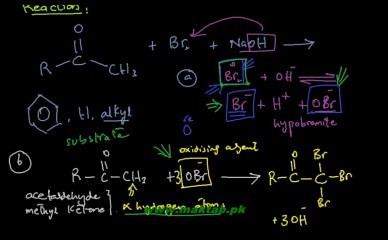 Reaction:
O
R C CH3 + Br2 + NaOH →
a Br2 + OH⁻ ⇌
, H, alkyl
Br⁻ + H⁺ + OBr⁻
substrate
hypobromite
b oxidising agent
O
R-C-CH3 + 3 OBr⁻ → R-C-C-Br
O Br
Br
acetaldehyde
methyl ketones
α hydrogen atoms
www.maktab.pk
+ 3OH⁻